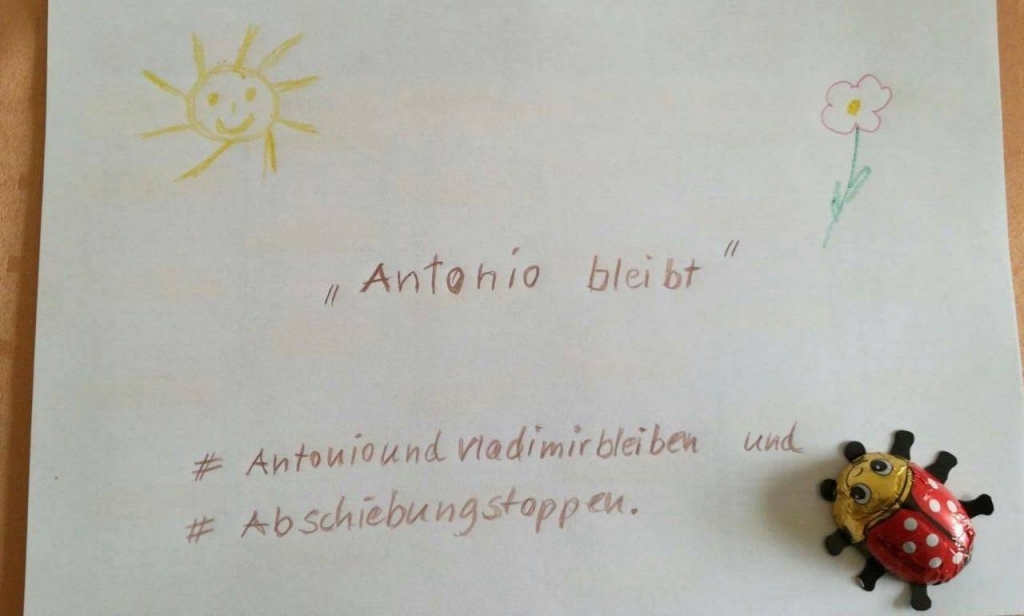 „Antonio bleibt"
# Antoniound vladimirbleiben und
# Abschiebungstoppen.